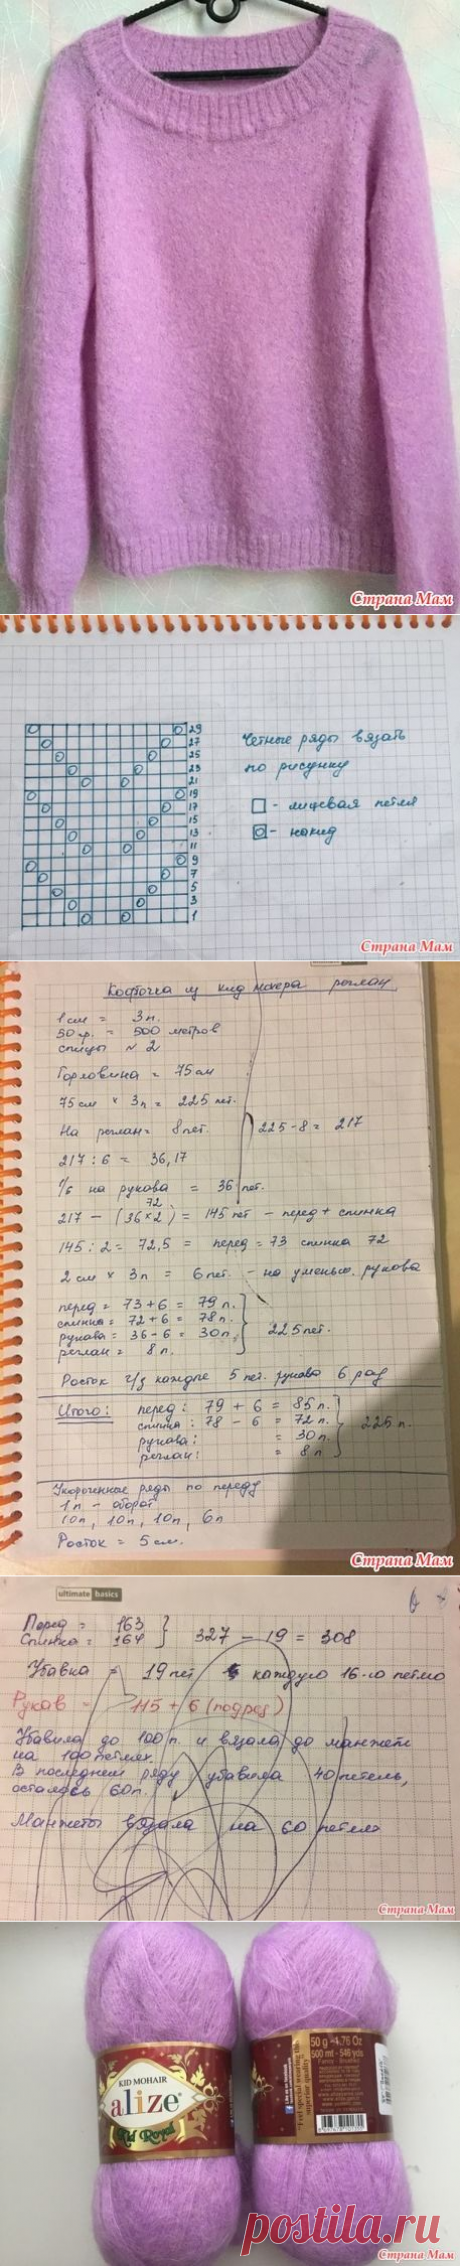 Страна Мам
29
27
25
23
21
19
17
15
13
11
9
7
5
3
1
Четные ряды вязать
по рисунку
- лицевая петля
- накид
Страна Мам
Кофточка из кид мохера реглан
1 см = 3 п.
50 гр. = 500 метров
спицы № 2
Горловина = 75 см
75 см × 3 п = 225 пет.
На реглан = 8 пет. 225 - 8 = 217
217 : 6 = 36,17
1/6 на рукава = 36 пет.
72
217 - (36 × 2) = 145 пет - перед + спинка
145 : 2 = 72,5 = перед = 73 спинка 72
2 см × 3 п = 6 пет. - на уменьш. рукава
перед = 73 + 6 = 79 п.
спинка = 72 + 6 = 78 п.
рукава = 36 - 6 = 30 п.
реглан = 8 п.
225 пет.
Росток ч/з каждые 5 пет. рукава 6 раз
Итого: перед: 79 + 6 = 85 п.
спинка: 78 - 6 = 72 п.
рукава: = 30 п.
реглан: = 8 п
225 п.
Укороченные ряды по переду
1 п - оборот
10 п, 10 п, 10 п, 6 п
Росток = 5 см.
Страна Мам
ultimate basics
Перед = 163
Спинка = 164
327 - 19 = 308
Убавка = 19 пет каждую 16-ю петлю
Рукав = 115 + 6 (подрез)
Убавила до 100 п. и вязала до манжет
на 100 петлях.
В последнем ряду убавила 40 петель,
осталось 60 п.
Манжеты вязала на 60 петлях
Страна Мам
KID MOHAIR
alize
Kid Royal
50 g - 4.76 Oz
500 mt - 546 yds
"Feel special wearing the
superior quality"
Страна Мам
postila.ru